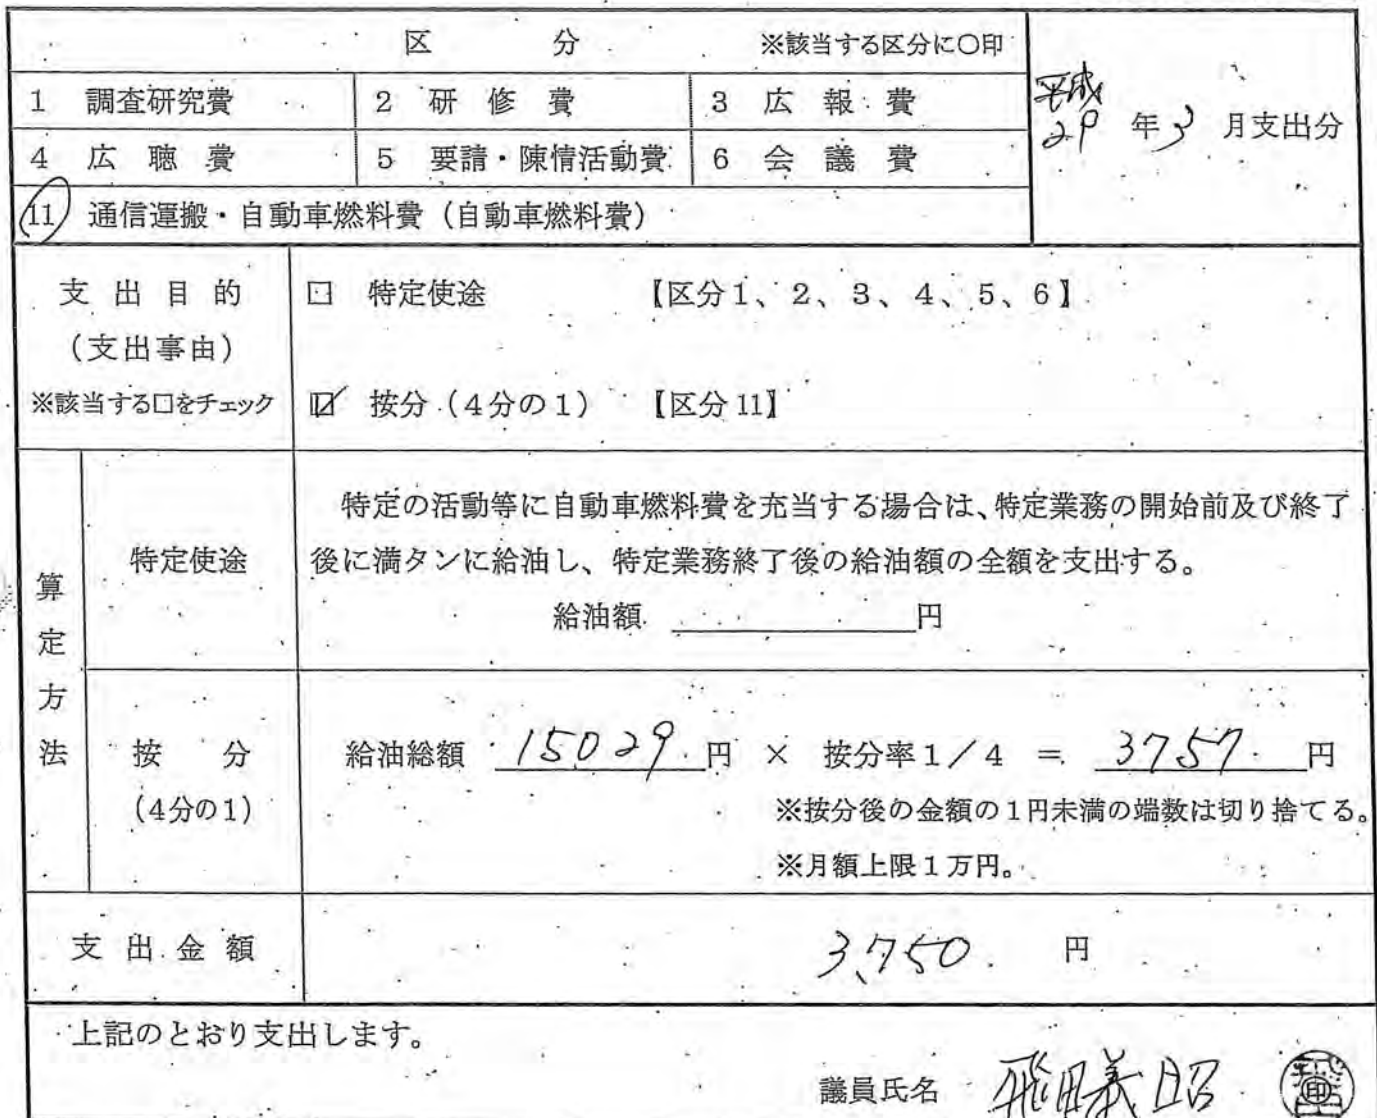 区 分 ※該当する区分に○印
平成
29 年 3 月支出分
1 調査研究費 2 研修費 3 広報費
4 広聴費 5 要請・陳情活動費 6 会議費
11 通信運搬・自動車燃料費(自動車燃料費)
支出目的 □ 特定使途 【区分1、2、3、4、5、6】
(支出事由)
※該当する□をチェック ☑ 按分(4分の1) 【区分11】
算定方法
特定使途
特定の活動等に自動車燃料費を充当する場合は、特定業務の開始前及び終了
後に満タンに給油し、特定業務終了後の給油額の全額を支出する。
給油額 円
按分 給油総額 15029.円 × 按分率1/4 = 3757. 円
(4分の1) ※按分後の金額の1円未満の端数は切り捨てる。
※月額上限1万円。
支出金額 3,750. 円
上記のとおり支出します。
議員氏名 飛田義昭